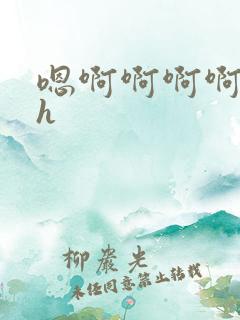 嗯啊啊啊啊
h
柳岩光
未经同意禁止转载